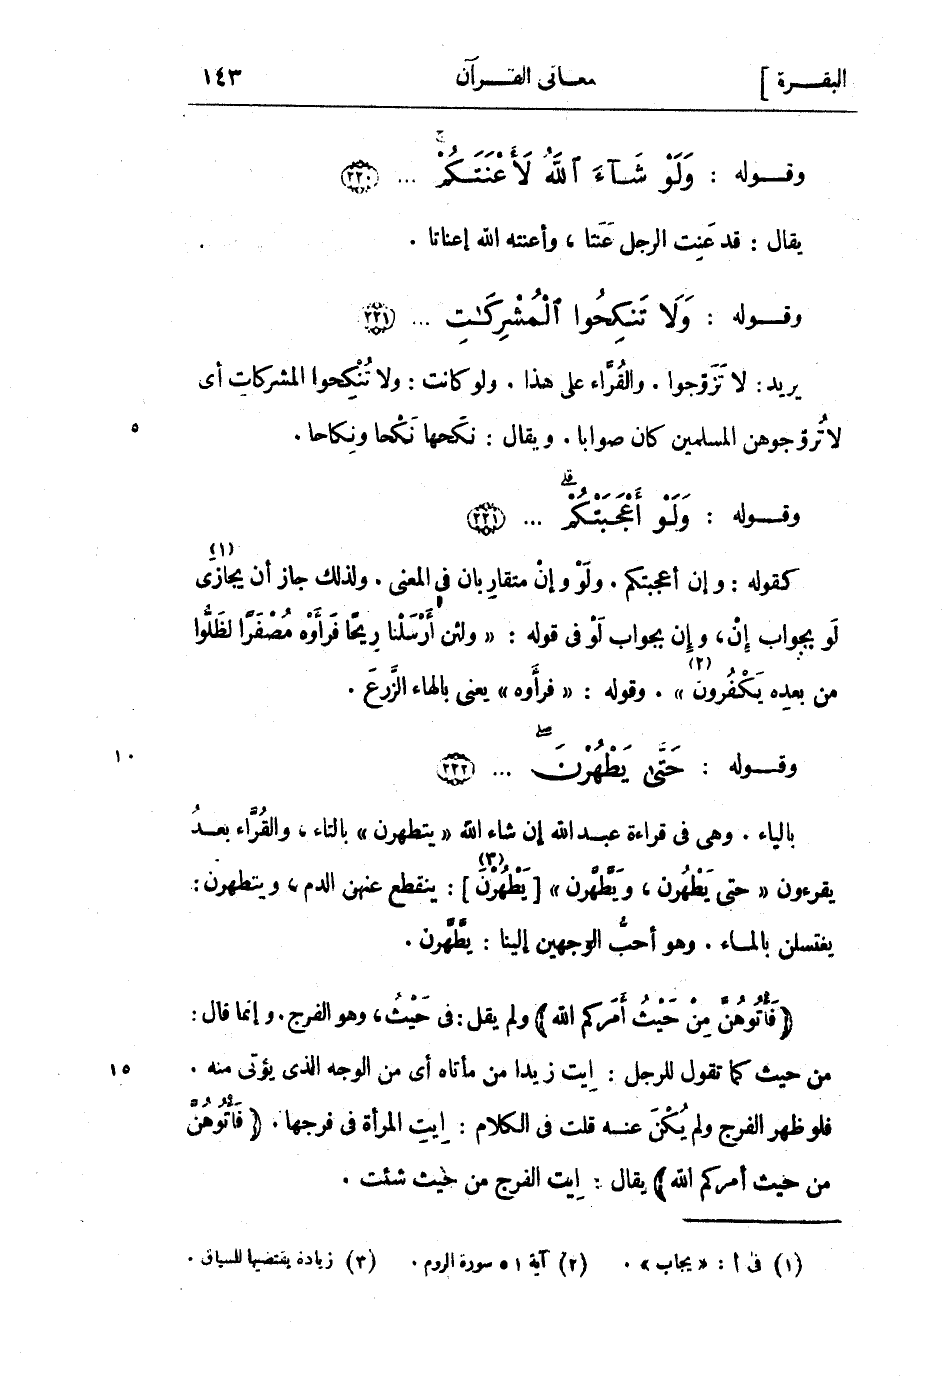 البقـــرة ] معـانى القـــرآن ١٤٣
وقـــوله : وَلَوْ شَـآءَ ٱللَّهُ لَأَعْنَتَـكُمْ ۚ ... ٢٢٠
يقال : قد عَنِت الرجل عَنَتا ، وأعنته الله إعناتا .
وقـــوله : وَلَا تَنكِحُوا ٱلْمُشْرِكَـٰتِ ... ٢٢١
يريد : لا تَزَوّجوا . والقُرَّاء على هذا . ولو كانت : ولا تُنْكِحوا المشركاتِ أى
٥ لا تُزوّجوهن المسلمين كان صوابا . ويقال : نكَحها نَكْحا ونِكاحا .
وقـــوله : وَلَوْ أَعْجَبَتْـكُمْ ۗ ... ٢٢١
كقوله : وإن أعجبتكم . ولَوْ وإنْ متقاربان فى المعنى . ولذلك جاز أن يجازَى (١)
لَو بجواب إنْ ، وإن بجواب لَوْ فى قوله : « ولئن أَرْسَلْنا رِيحًا فَرأَوْه مُصْفَرًّا لظَلُّوا
من بعدِه يَكْفُرونَ » (٢) . وقوله : « فرأَوه » يعنى بالهاء الزَّرعَ .
١٠ وقـــوله : حَتَّىٰ يَطْهُرْنَ ۖ ... ٢٢٢
بالياء . وهى فى قراءة عبـد الله إن شاء الله « يتطهرن » بالتاء ، والقُرَّاء بعـدُ
يقرءون « حتى يَطْهُرن ، ويَطَّهَّرن » [ يَطْهُرْنَ ] (٣) : ينقطع عنهن الدم ، ويتطهرن :
يغتسلن بالمـاء . وهو أحبُّ الوجهين إلينا : يطَّهَّرن .
﴿ فَأْتُوهُنَّ مِنْ حَيْثُ أَمَركم الله ﴾ ولم يقل : فى حَيْثُ ، وهو الفرج . وإنما قال :
١٥ من حيث كما تقول للرجل : اِيت زيدا من مأتاه أى من الوجه الذى يؤتى منه .
فلو ظهر الفرج ولم يُكْنَ عنـه قلت فى الكلام : اِيتِ المرأة فى فرجها . ﴿ فَأْتُوهُنَّ
من حيث أمركم الله ﴾ يقال : اِيت الفرج من حيث شئت .
(١) فى ا : « يجاب » . (٢) آية ٥١ سورة الروم . (٣) زيادة يقتضيها السياق .